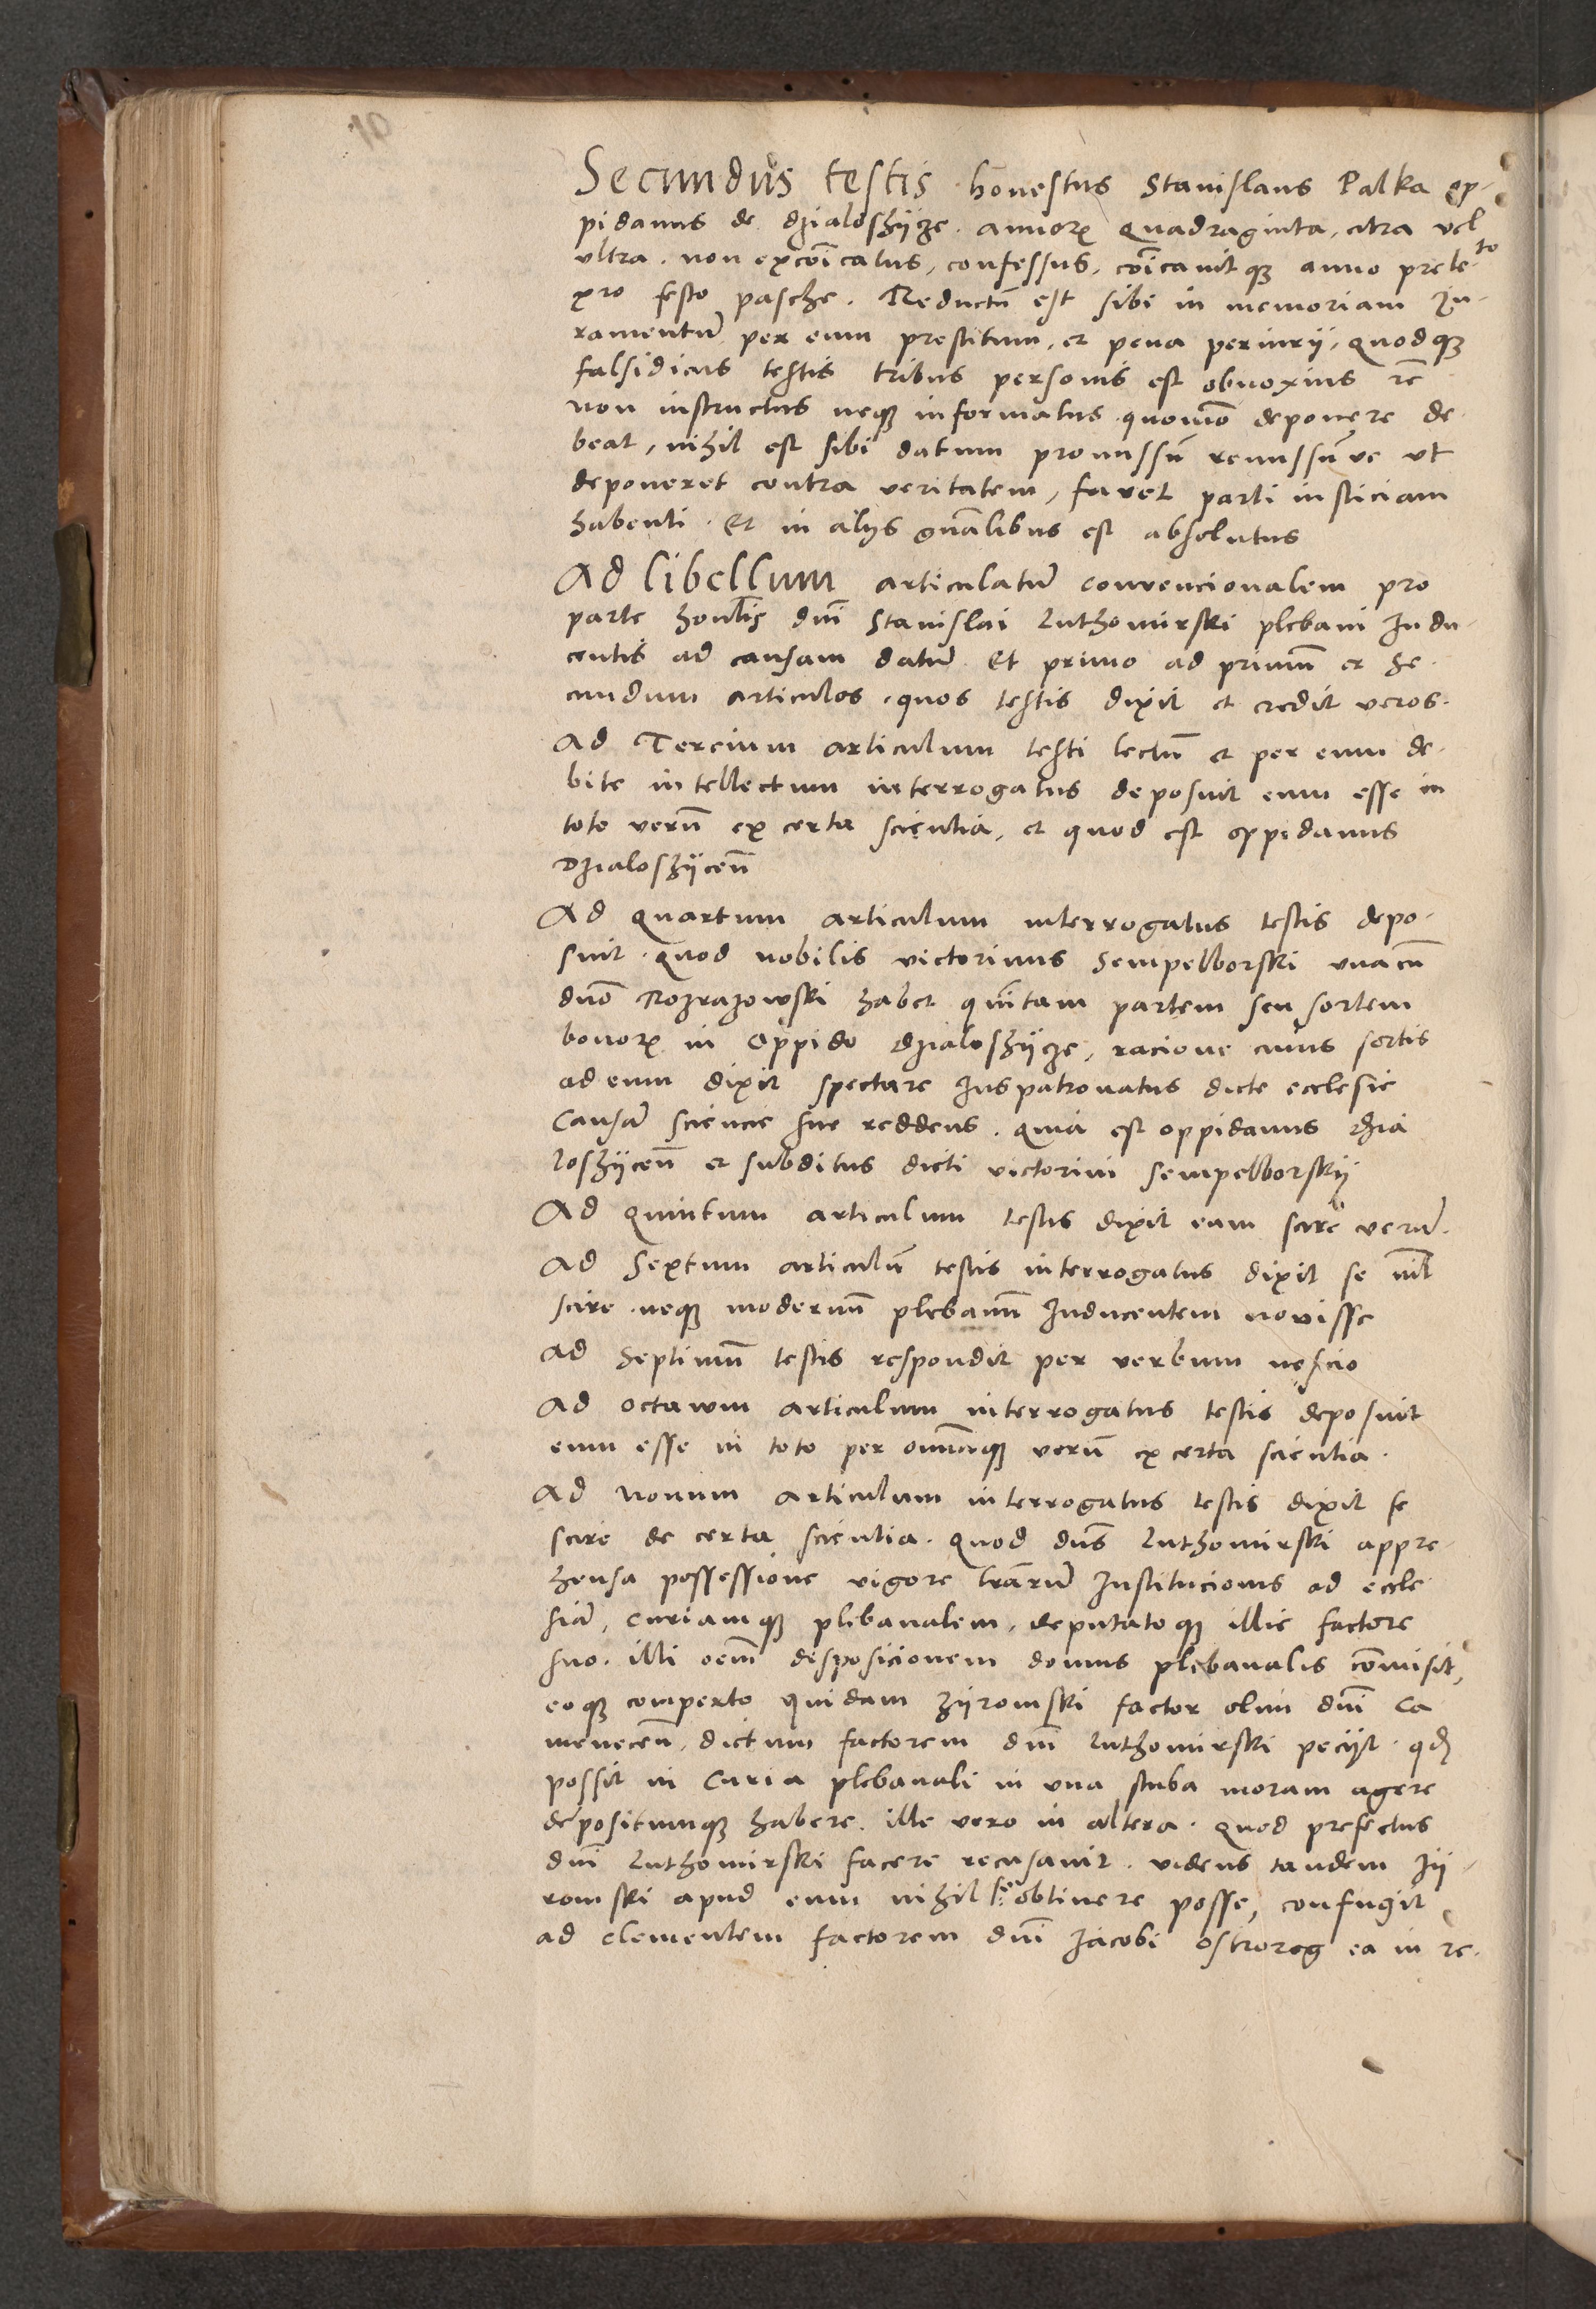 Secundus testis honestus Stanislaus Palka op-
pidanus de dzialoschijcze. annorꝫ quadraginta, citra vel
vltra. non excōicatus, confessus, cōicavitqꝫ anno prete-to
pro festo pasche. Reductū est sibi in memoriam Iu-
ramentū per eum prestitum, et pena periurij, quodqꝫ
falsidicus testis tribus personis est obnoxius rē
non instructus neqꝫ informatus quomō deponere de
beat, nihil est sibi datum promissū remissūve vt
deponeret contra veritatem, favet parti iusticiam
habenti. Et in alijs gn̄alibus est absolutus
Ad libellum articulatū convencionalem pro
parte honl̄is dn̄i Stanislai Luthomirski plebani Indu-
centis ad causam datū. Et primo ad primū et Se-
cundum articulos, quos testis dixit et credit veros.
Ad Tercium articulum testi lectū et per eum de-
bite intellectum interrogatus deposuit eum esse in
toto verū ex certa scientia, et quod est oppidanus
Dzialoschijcen̄
Ad quartum articulum interrogatus testis depo-
suit. quod nobilis victorinus Sempelborski vnacū
dn̄o Rozrazowski habet quītam partem seu sortem
bonorꝫ in Oppido dzialoschijcze, racione cuius sortis
ad eum dixit spectare Iuspatronatus dicte ecclesie
Causā sciencie sue reddens. quia est oppidanus dzia
loschijcen̄ et subditus dicti victorini Sempelborskij
Ad quintum articulum testis dixit eum scire verū.
Ad Sextum articulū testis interrogatus dixit se nil̄
scire. neqꝫ modernū plebanū Inducentem novisse
Ad Septimū testis respondit per verbum nescio
Ad octavum articulum interrogatus testis deposuit
eum esse in toto per omniaqꝫ verū ex certa scientia.
Ad nonum articulum interrogatus testis dixit se
scire de certa scientia. quod dn̄s Luthomirski appre-
hensa possessione vigore l̄rarū Institucionis ad eccle
siā, curiamqꝫ plebanalem, deputatoqꝫ illic factore
suo. illi oēm disposicionem domus plebanalis cōmisit,
eoqꝫ comperto quidam Zijromski factor olim dn̄i Ca
menecen̄, dictum factorem dn̄i Luthomirski peciit. qd̄
possit in Curia plebanali in vna stuba moram agere
depositumqꝫ habere. ille vero in altera. quod prefectus
dn̄i Luthomirski facere recusavit. videns tandem Zij-
romski apud eum nihil se obtinere posse, confugit
ad Clementem factorem dn̄i Jacobi Ostrorog ea in re.